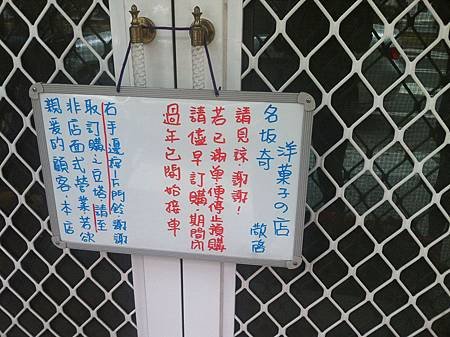 親愛的顧客,本店
非店面式營業若欲
取訂購之豆塔請至
右手邊按下門鈴謝謝
過年已開始接單
請儘早訂購期間內
若已滿單便停止預購
請見諒,謝謝!
名坂奇
洋菓子の店
敬啓